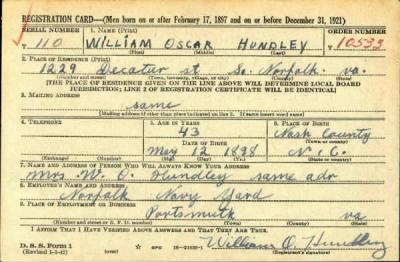 REGISTRATION CARD—(Men born on or after February 17, 1897 and on or before December 31, 1921)
SERIAL NUMBER 1. NAME (Print) ORDER NUMBER
110 WILLIAM OSCAR HUNDLEY 10533
(First) (Middle) (Last)
2. PLACE OF RESIDENCE (Print)
1229 Decatur st So. Norfolk va.
(Number and street) (Town, township, village, or city) (County) (State)
[THE PLACE OF RESIDENCE GIVEN ON THE LINE ABOVE WILL DETERMINE LOCAL BOARD
JURISDICTION; LINE 2 OF REGISTRATION CERTIFICATE WILL BE IDENTICAL]
3. MAILING ADDRESS
same
[Mailing address if other than place indicated on line 2. If same insert word same]
4. TELEPHONE 5. AGE IN YEARS 6. PLACE OF BIRTH
43 Nash County
DATE OF BIRTH (Town or county)
May 12 1898 N.C.
(Exchange) (Number) (Mo.) (Day) (Yr.) (State or country)
7. NAME AND ADDRESS OF PERSON WHO WILL ALWAYS KNOW YOUR ADDRESS
Mrs. W. O. Hundley same adr
8. EMPLOYER'S NAME AND ADDRESS
Norfolk Navy Yard
9. PLACE OF EMPLOYMENT OR BUSINESS
Portsmuth va
(Number and street or R. F. D. number) (Town) (County) (State)
I AFFIRM THAT I HAVE VERIFIED ABOVE ANSWERS AND THAT THEY ARE TRUE.
D. S. S. Form 1
(Revised 1-5-42) GPO William O. Hundley
(Registrant's signature)